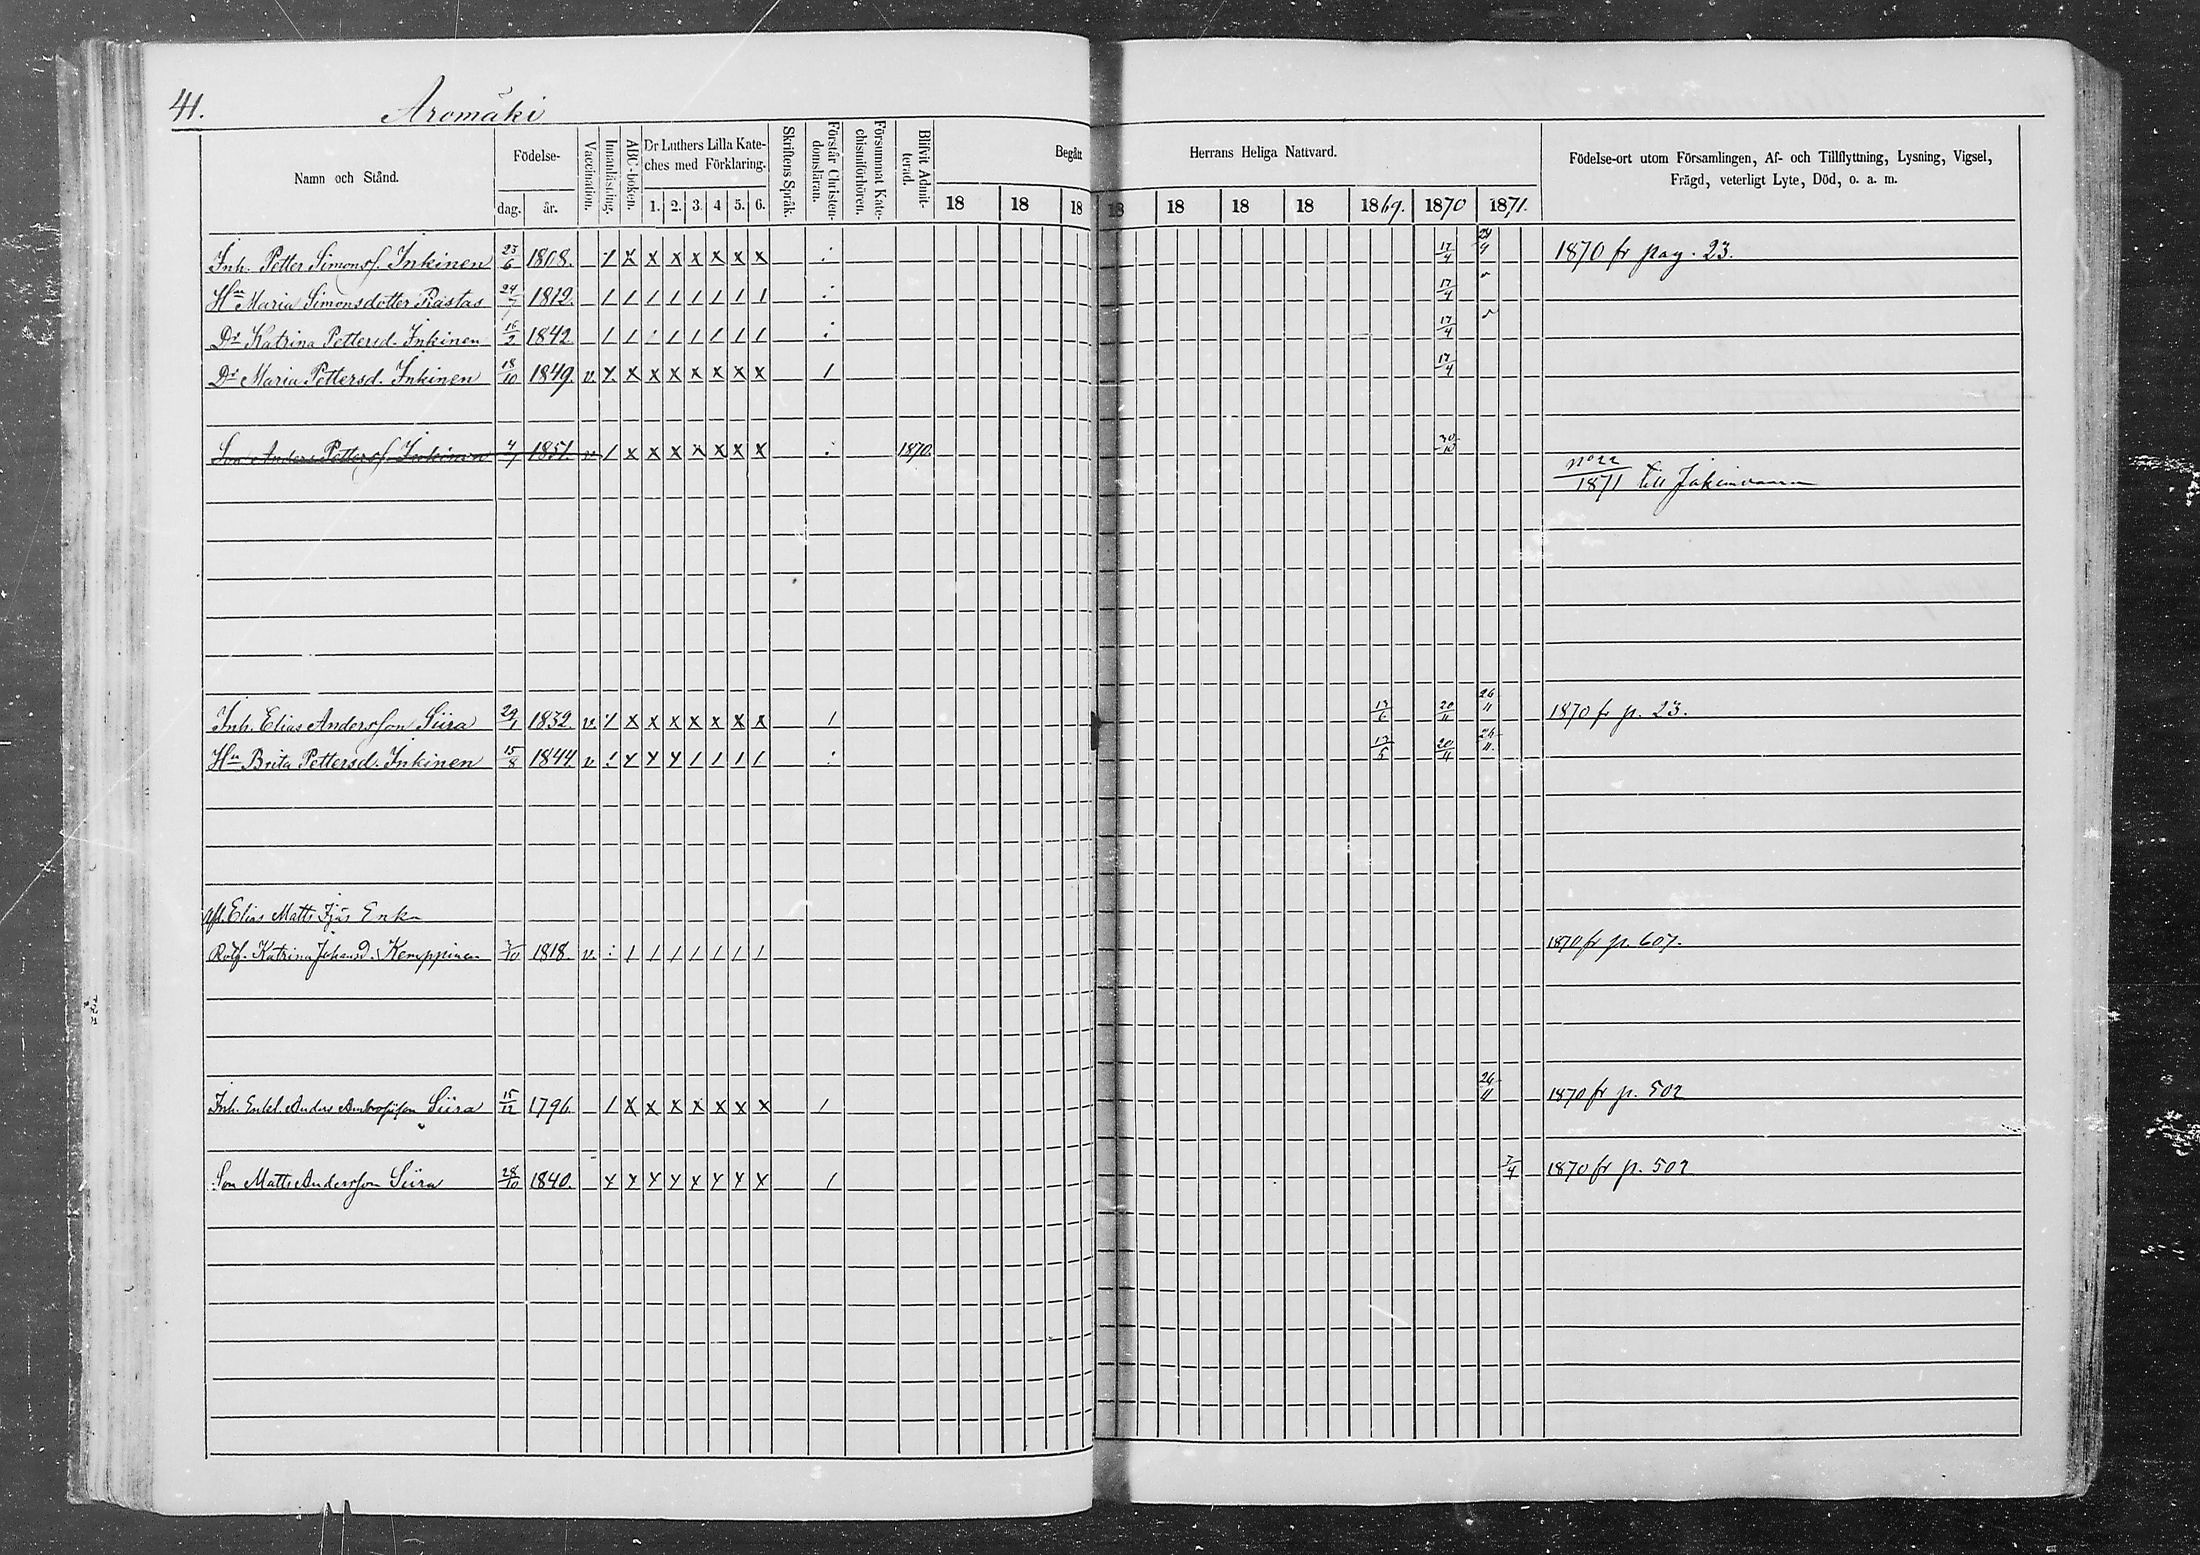 41.
Aromäki
Namn och Stånd.
Födelse-
dag.
år.
Vaccination.
Innanläsning.
ABC-boken.
Dr Luthers Lilla Kate-
ches med Förklaring.
1. 2. 3. 4 5. 6.
Skriftens Språk.
Förstår Christen-
domsläran.
Försummat Kate-
chismiförhören.
Blifvit Admit-
terad.
Begått Herrans Heliga Nattvard.
18 18 18 18 18 18 18 1869. 1870 1871.
Födelse-ort utom Församlingen, Af- och Tillflyttning, Lysning, Vigsel,
Frägd, veterligt Lyte, Död, o. a. m.
Inh. Petter Simonss. Inkinen 23/6 1808. / x x x x x x x 17/4 1870 fr pag. 23.
Hu Maria Simonsdotter Rastas 24/7 1812. / / / / / / / / 17/4
Dr Katrina Pettersd. Inkinen 16/2 1842 / / / / / / / / 17/4
Dr Maria Pettersd. Inkinen 18/10 1849. v. x x x x x x x x / 17/4
Son Anders Petterss. Inkinen 4/7 1851. v. / x x x x x x x 1870. 30/10
No 22/1871 till Jakimvaara
Inh. Elias Andersson Siira 29/1 1832 v. / x x x x x x x / 13/6 20/11 26/11 1870 fr p. 23.
Hu Brita Pettersd. Inkinen 15/8 1844 v. 13/6 20/11 26/11
Elias Matts Enka
Katrina Johansd. Kemppinen 1818 v. / / / / / / / 1870 fr p. 607.
Inh. Enkl. Anders Siira 15/12 1796. / x x x x x x x / 26/11 1870 fr p. 502
Son Matts Andersson Siira 28/10 1840. x x x x x x x x / 7/4 1870 fr p. 502